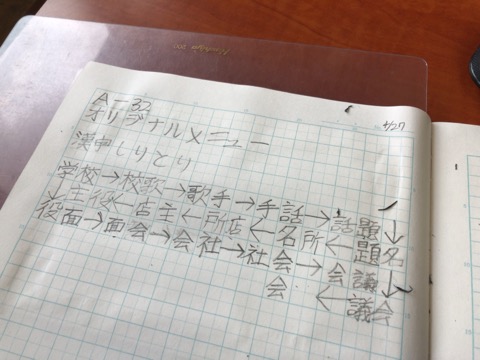 4/27
オリジナルメニュー
漢字しりとり
学校→校歌→歌手→手話→話題↓
↓主役←店主←所店←名所←題名
役面→面会→会社→社会→会議↓
会←議会